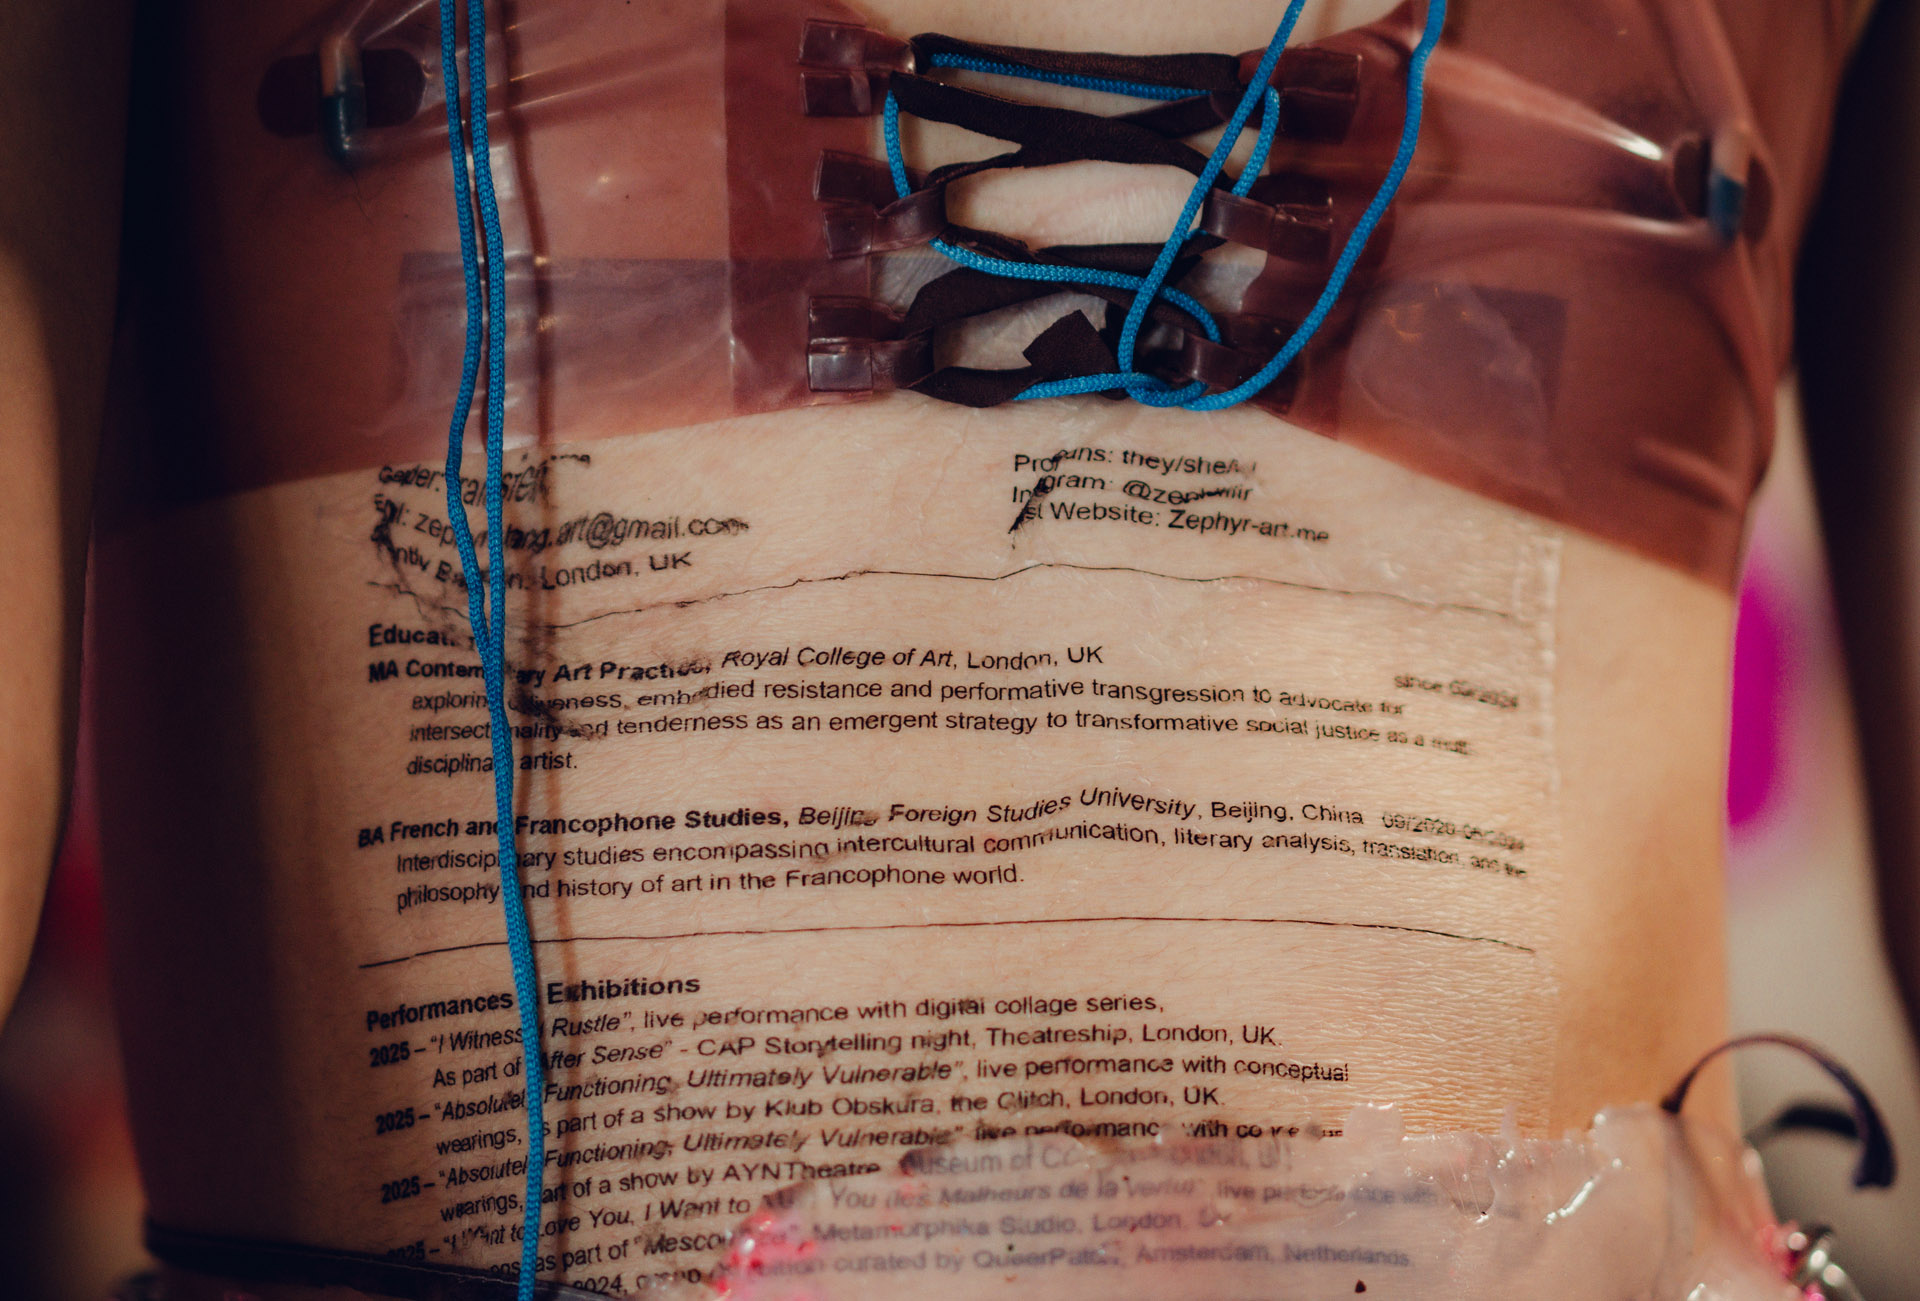 London, UK
they/she
Website: Zephyr-art.me
MA Art Royal College of Art, London, UK
since
embodied resistance and performative transgression to advocate for
and tenderness as an emergent strategy to transformative social justice as a
artist.
BA French Francophone Studies, Beijing Foreign Studies University, Beijing, China
studies encompassing intercultural communication, literary analysis, translation, and the
philosophy and history of art in the Francophone world.
Performances Exhibitions
2025 – “I Witness I Rustle”, live performance with digital collage series,
As part of “After Sense” - CAP Storytelling night, Theatreship, London, UK.
2025 – “Absolutely Functioning, Ultimately Vulnerable”, live performance with conceptual
wearings, as part of a show by Klub Obskura, the Glitch, London, UK.
2025 – “Absolutely Functioning, Ultimately Vulnerable” live performance with
wearings, part of a show by AYNTheatre, Museum of
2025 – Love You, I Want to You (les Malheurs de la live
as part of Metamorphika Studio, London,
2024, curated by Amsterdam, Netherlands.